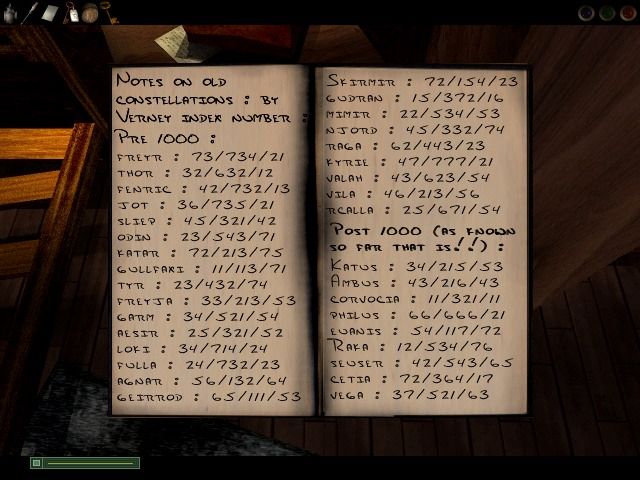 Notes on old
constellations : by
Verney index number :
Pre 1000 :
Freyr : 73/734/21
Thor : 32/632/12
Fenric : 42/732/13
Jot : 36/735/21
Sliep : 45/321/42
Odin : 23/543/71
Katar : 72/213/75
Gullfaxi : 11/113/71
Tyr : 23/432/74
Freyja : 33/213/53
Garm : 34/521/54
Aesir : 25/321/52
Loki : 34/714/24
Fulla : 24/732/23
Agnar : 56/132/64
Geirrod : 65/111/53
Skirmir : 72/154/23
Gudran : 15/372/16
Mimir : 22/534/53
Njord : 45/332/74
Raga : 62/443/23
Kyrie : 47/777/21
Valah : 43/623/54
Vila : 46/213/56
Rcalla : 25/671/54
Post 1000 (as known
so far that is!!) :
Katus : 34/215/53
Ambus : 43/216/43
Corvocia : 11/321/11
Philus : 66/666/21
Euanis : 54/117/72
Raka : 12/534/76
Seuser : 42/543/65
Cetia : 72/364/17
Vega : 37/521/63